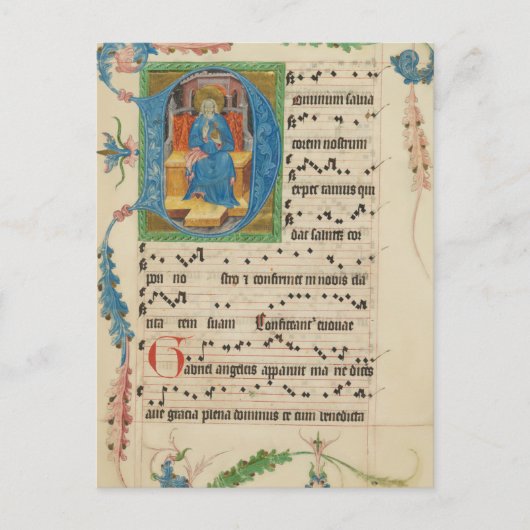 Dominum salva
torem nostrum
expec tamus qui
dat sanitatē cor
pori no stro ⁊ confirmet in nobis cla
rita tem suam Confiteant' evovae
Gabriel angelus apparuit ma rie dicēs
aue gracia plena dominus te cum benedicta